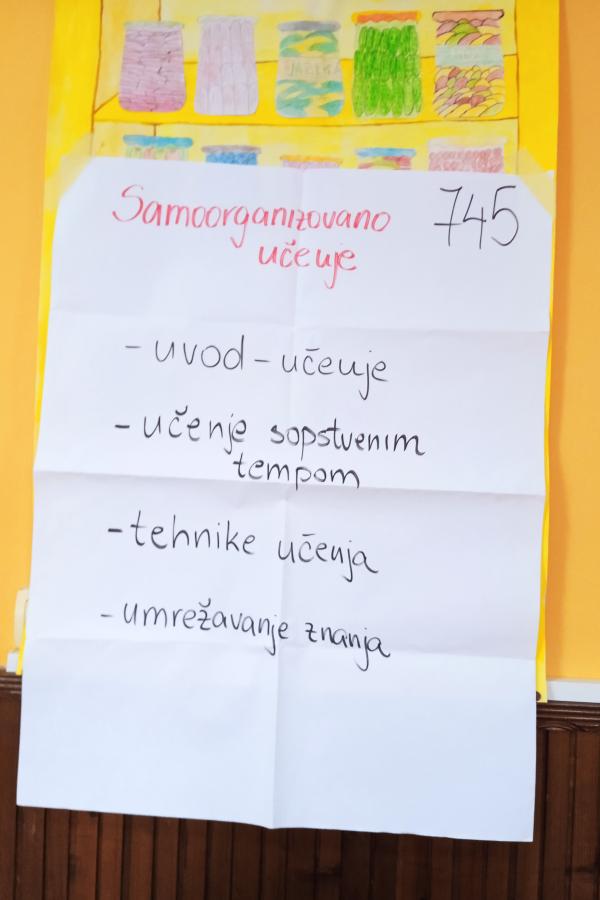 Samoorganizovano 745
učenje
- uvod - učenje
- učenje sopstvenim
tempom
- tehnike učenja
- umrežavanje znanja